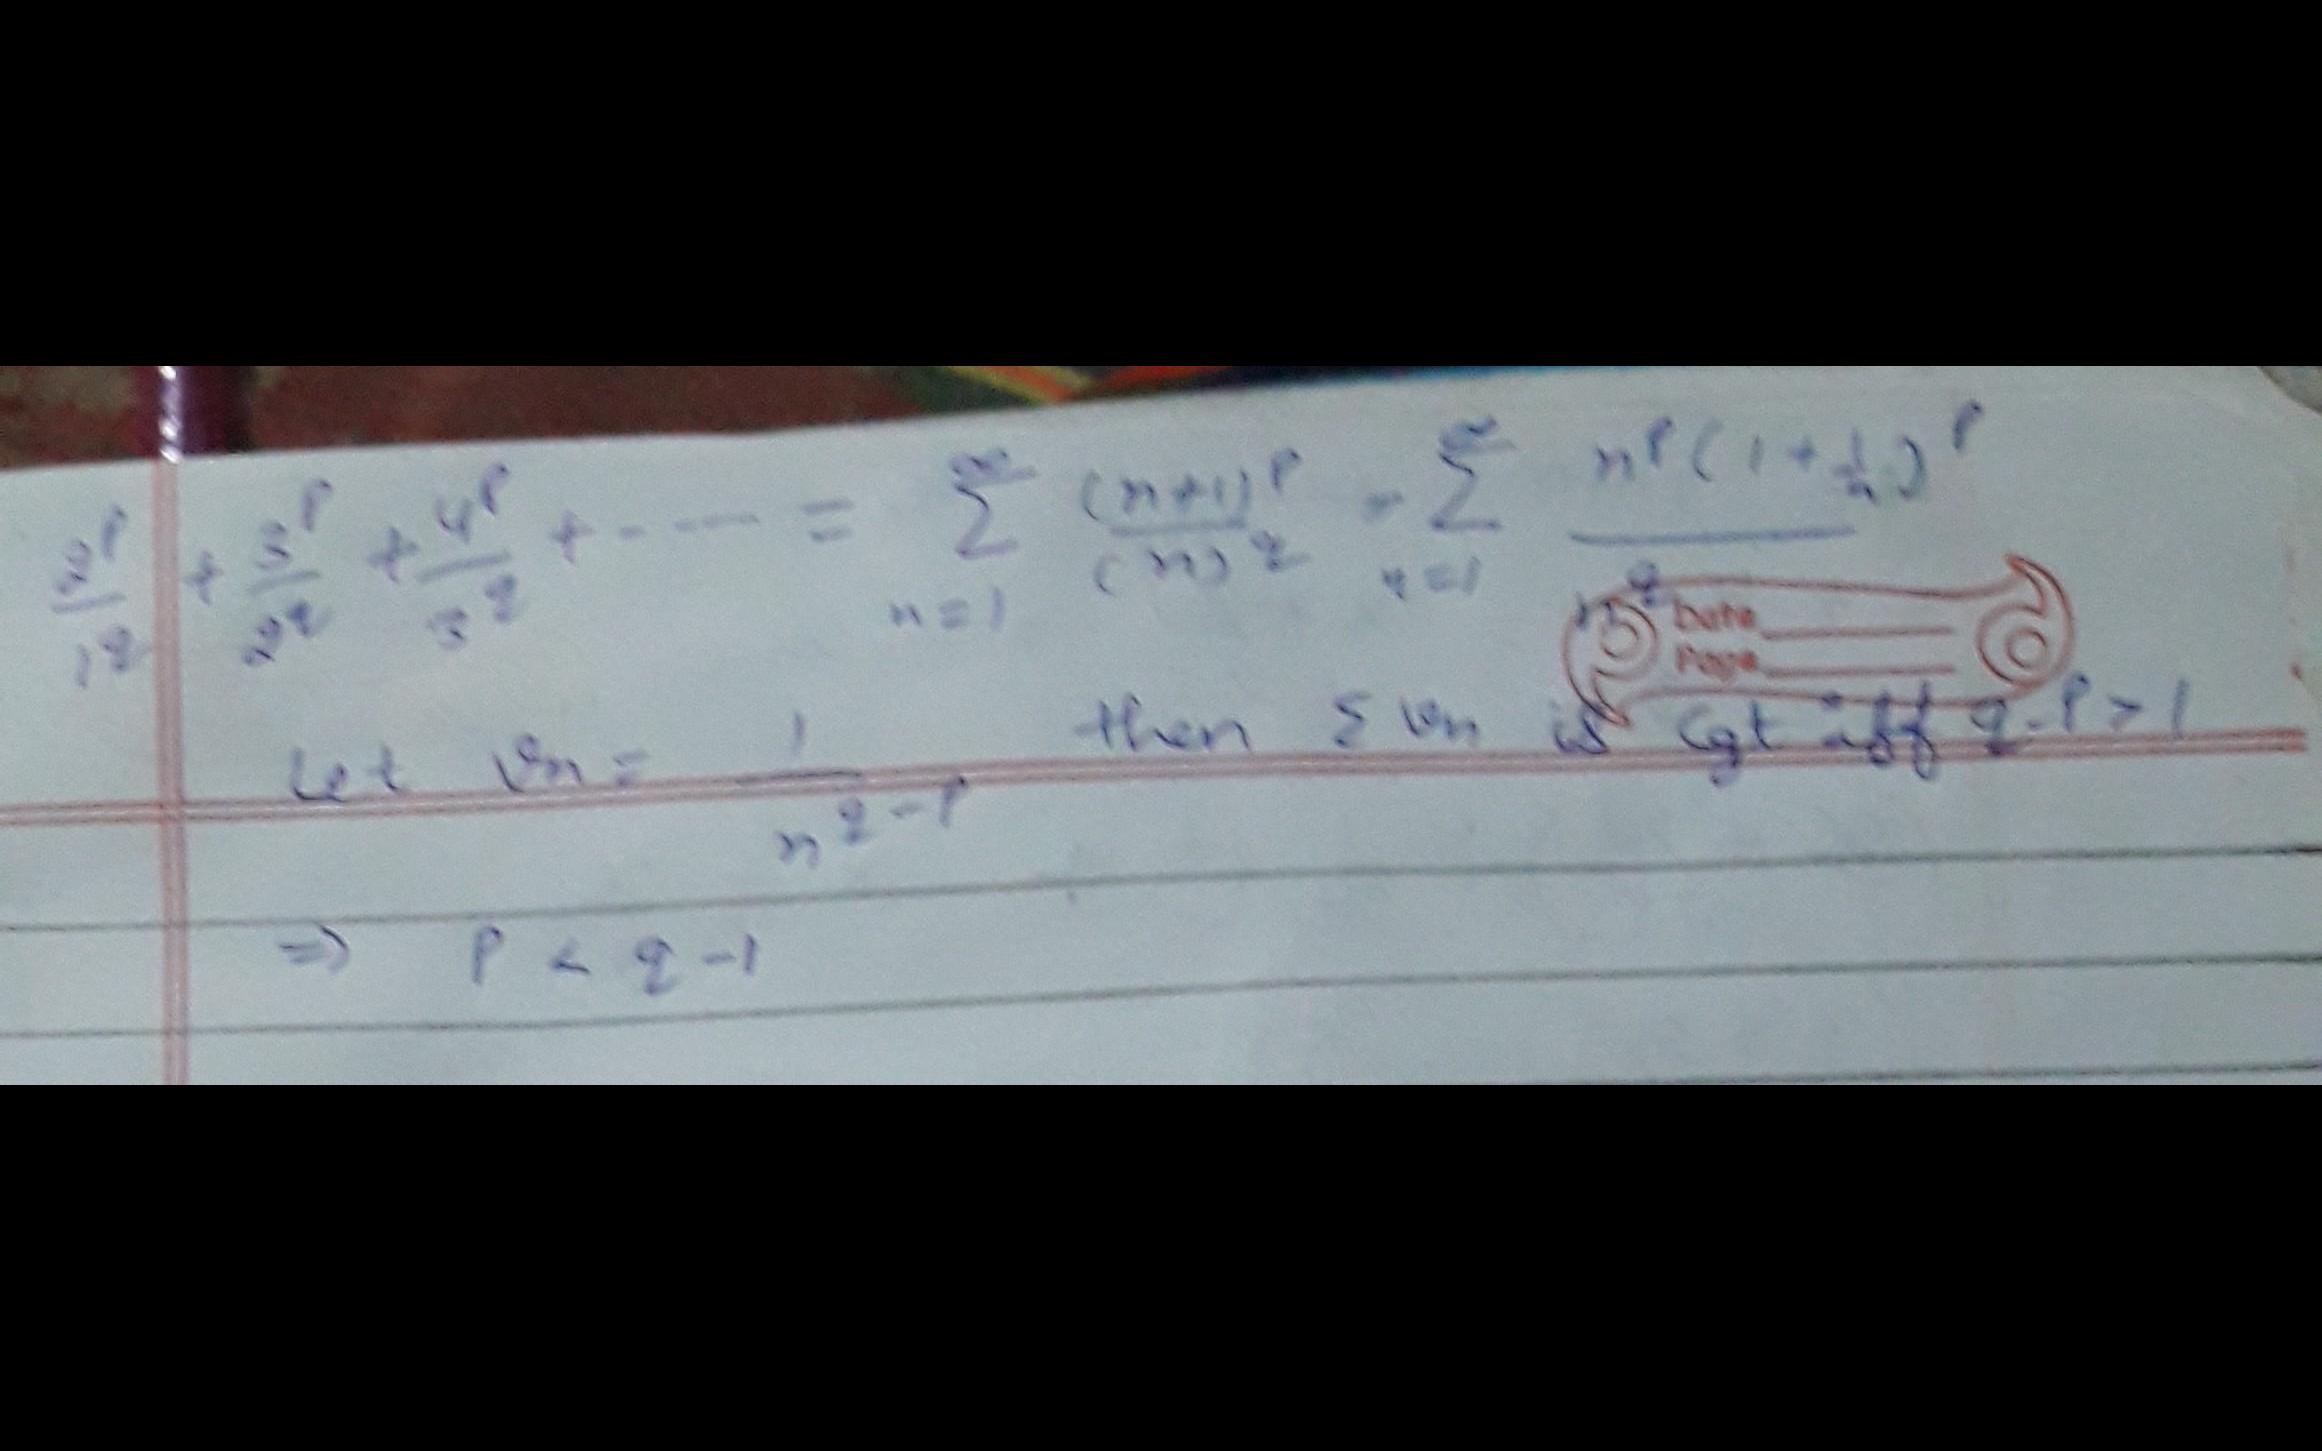 2^p/1^q + 3^p/2^q + 4^p/3^q + ---- = ∑_{n=1}^{∞} (n+1)^p/(n)^q = ∑_{n=1}^{∞} n^p(1+1/n)^p/n^q
Date
Page
Let vn = 1/n^{q-p} then Σ vn is Cgt iff q-p>1
⇒ p < q-1